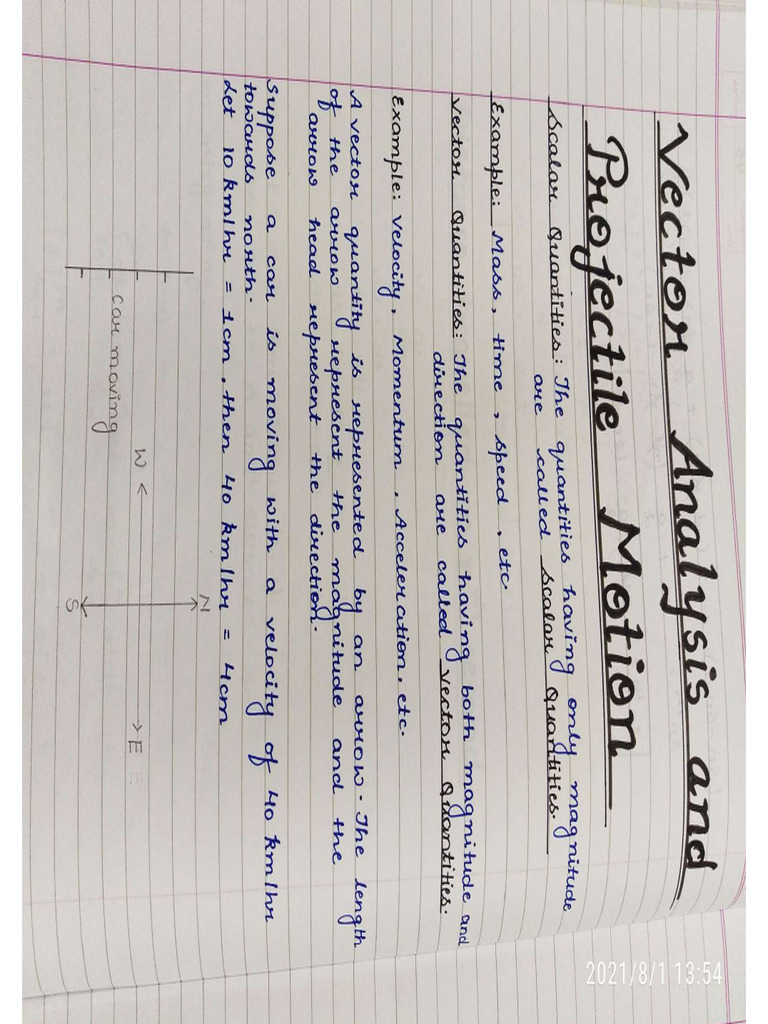 Vector Analysis and
Projectile Motion
Scalar Quantities: The quantities having only magnitude
are called scalar Quantities.
Example: Mass, time, speed, etc.
Vector Quantities: The quantities having both magnitude and
direction are called vector Quantities.
Example: Velocity, Momentum, Acceleration, etc.
A vector quantity is represented by an arrow. The length
of the arrow represent the magnitude and the
arrow head represent the direction.
Suppose a car is moving with a velocity of 40 km/hr
towards north.
Let 10 km/hr = 1cm, then 40 km/hr = 4cm
N
W E
car moving
S
2021/8/1 13:54